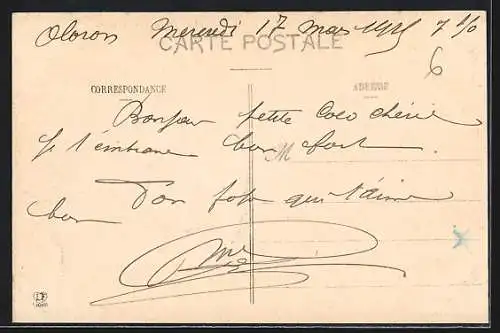 Oloron Mercredi 17 Mars
CARTE POSTALE
6
CORRESPONDANCE
ADRESSE
Bonjour petite Coco chérie
Je t'embrasse bien fort
M
Ton qui t'aime
bien